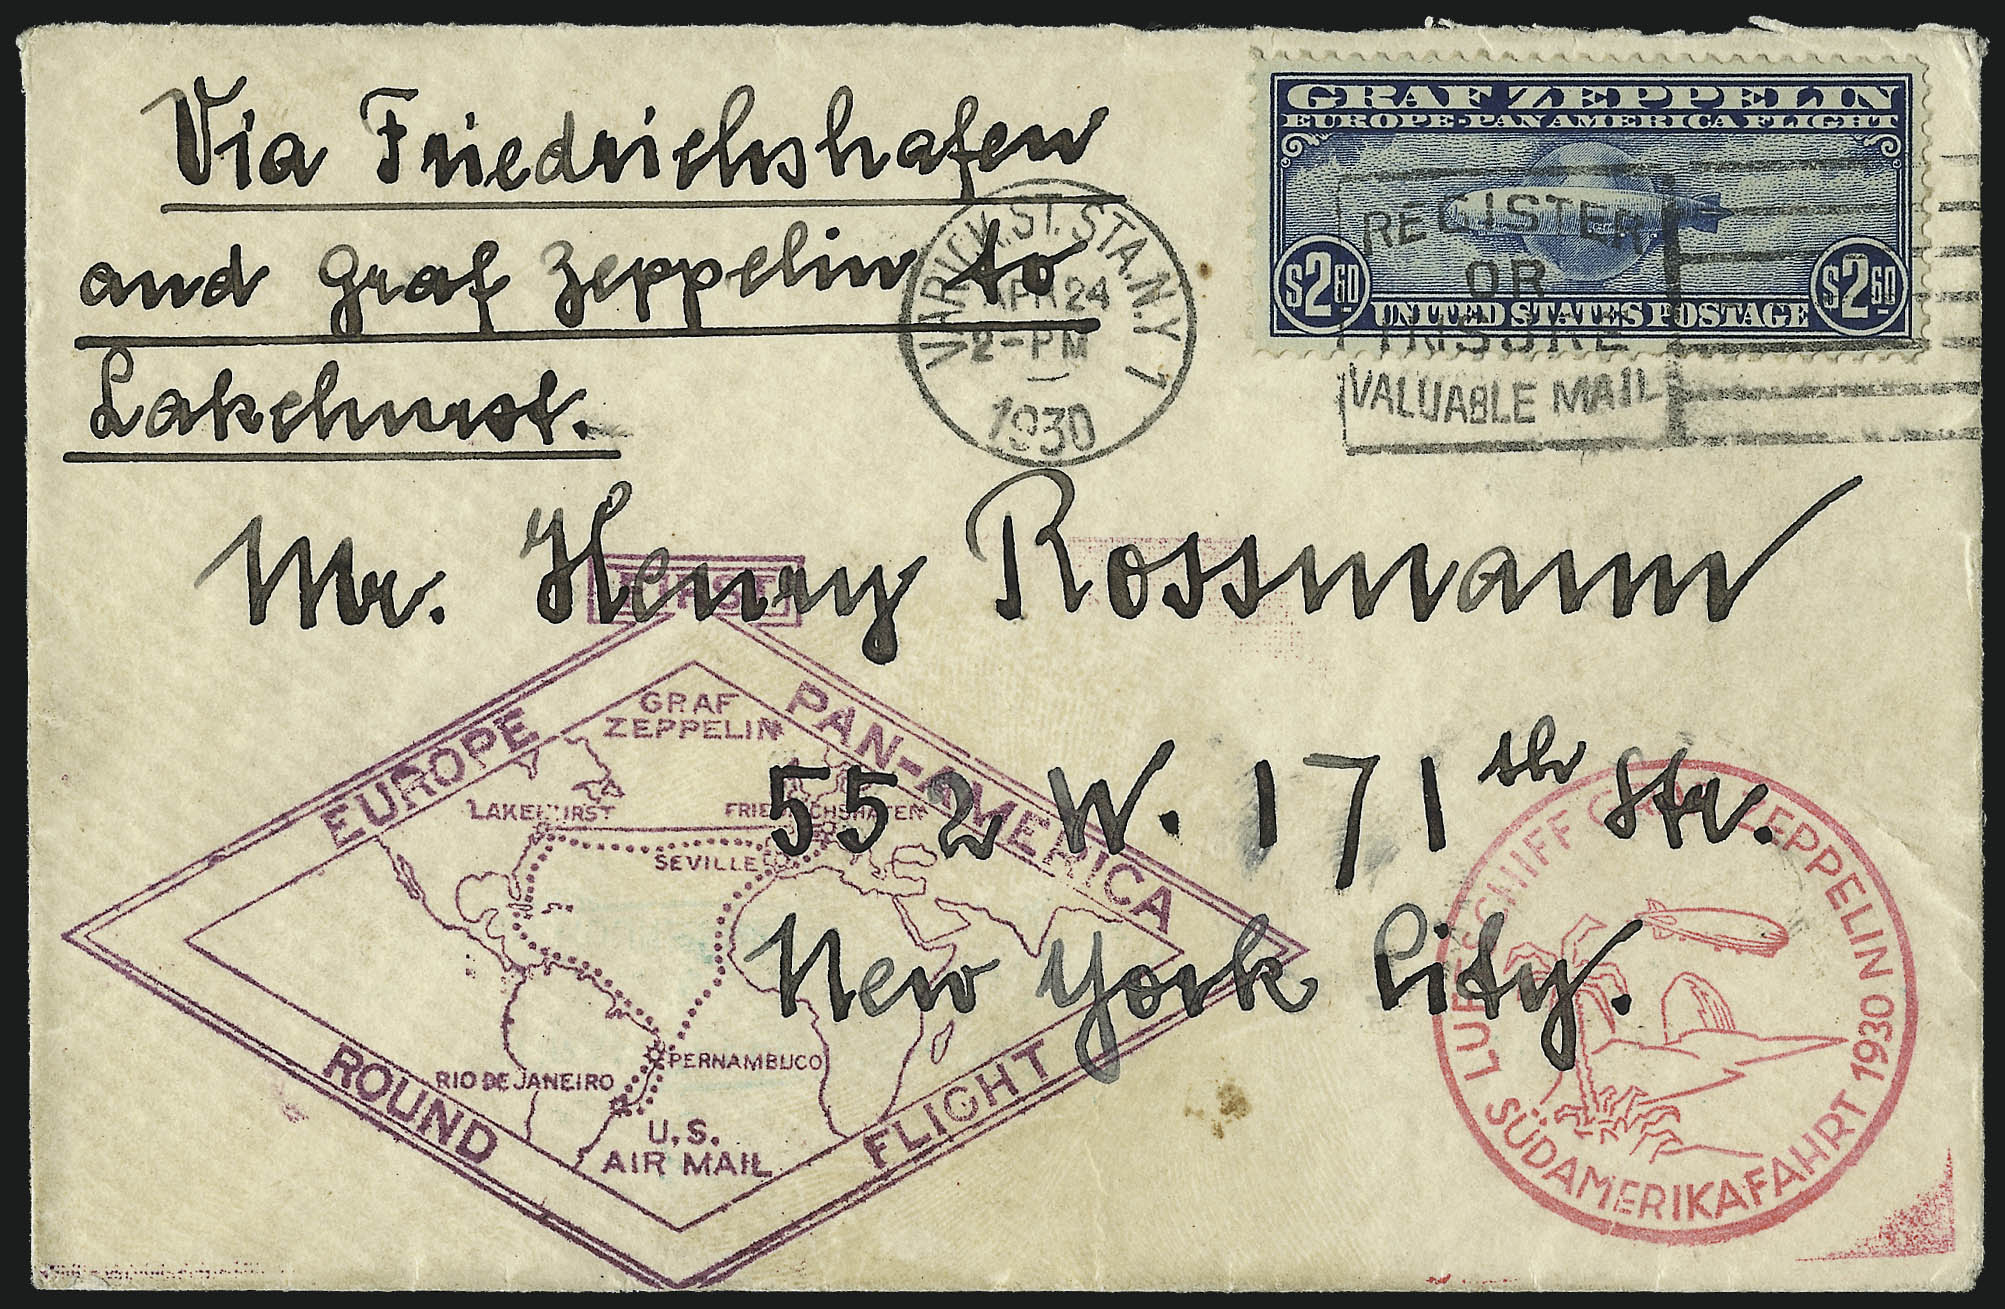 Via Friedrichshafen
and Graf Zeppelin to
Lakehurst.
GRAF ZEPPELIN
EUROPE-PAN AMERICA FLIGHT
$2.60 UNITED STATES POSTAGE $2.60
VARICK ST. STA. N.Y. 1
APR 24
2-PM
1930
REGISTER
OR
INSURE
VALUABLE MAIL
Mr. Henry Rossmann
552 W. 171th Str.
New York City.
FIRST
EUROPE
PAN-AMERICA
ROUND
FLIGHT
GRAF
ZEPPELIN
LAKEHURST
FRIEDRICHSHAFEN
SEVILLE
PERNAMBUCO
RIO DE JANEIRO
U.S.
AIR MAIL
LUFTSCHIFF GRAF ZEPPELIN
SÜDAMERIKAFAHRT 1930